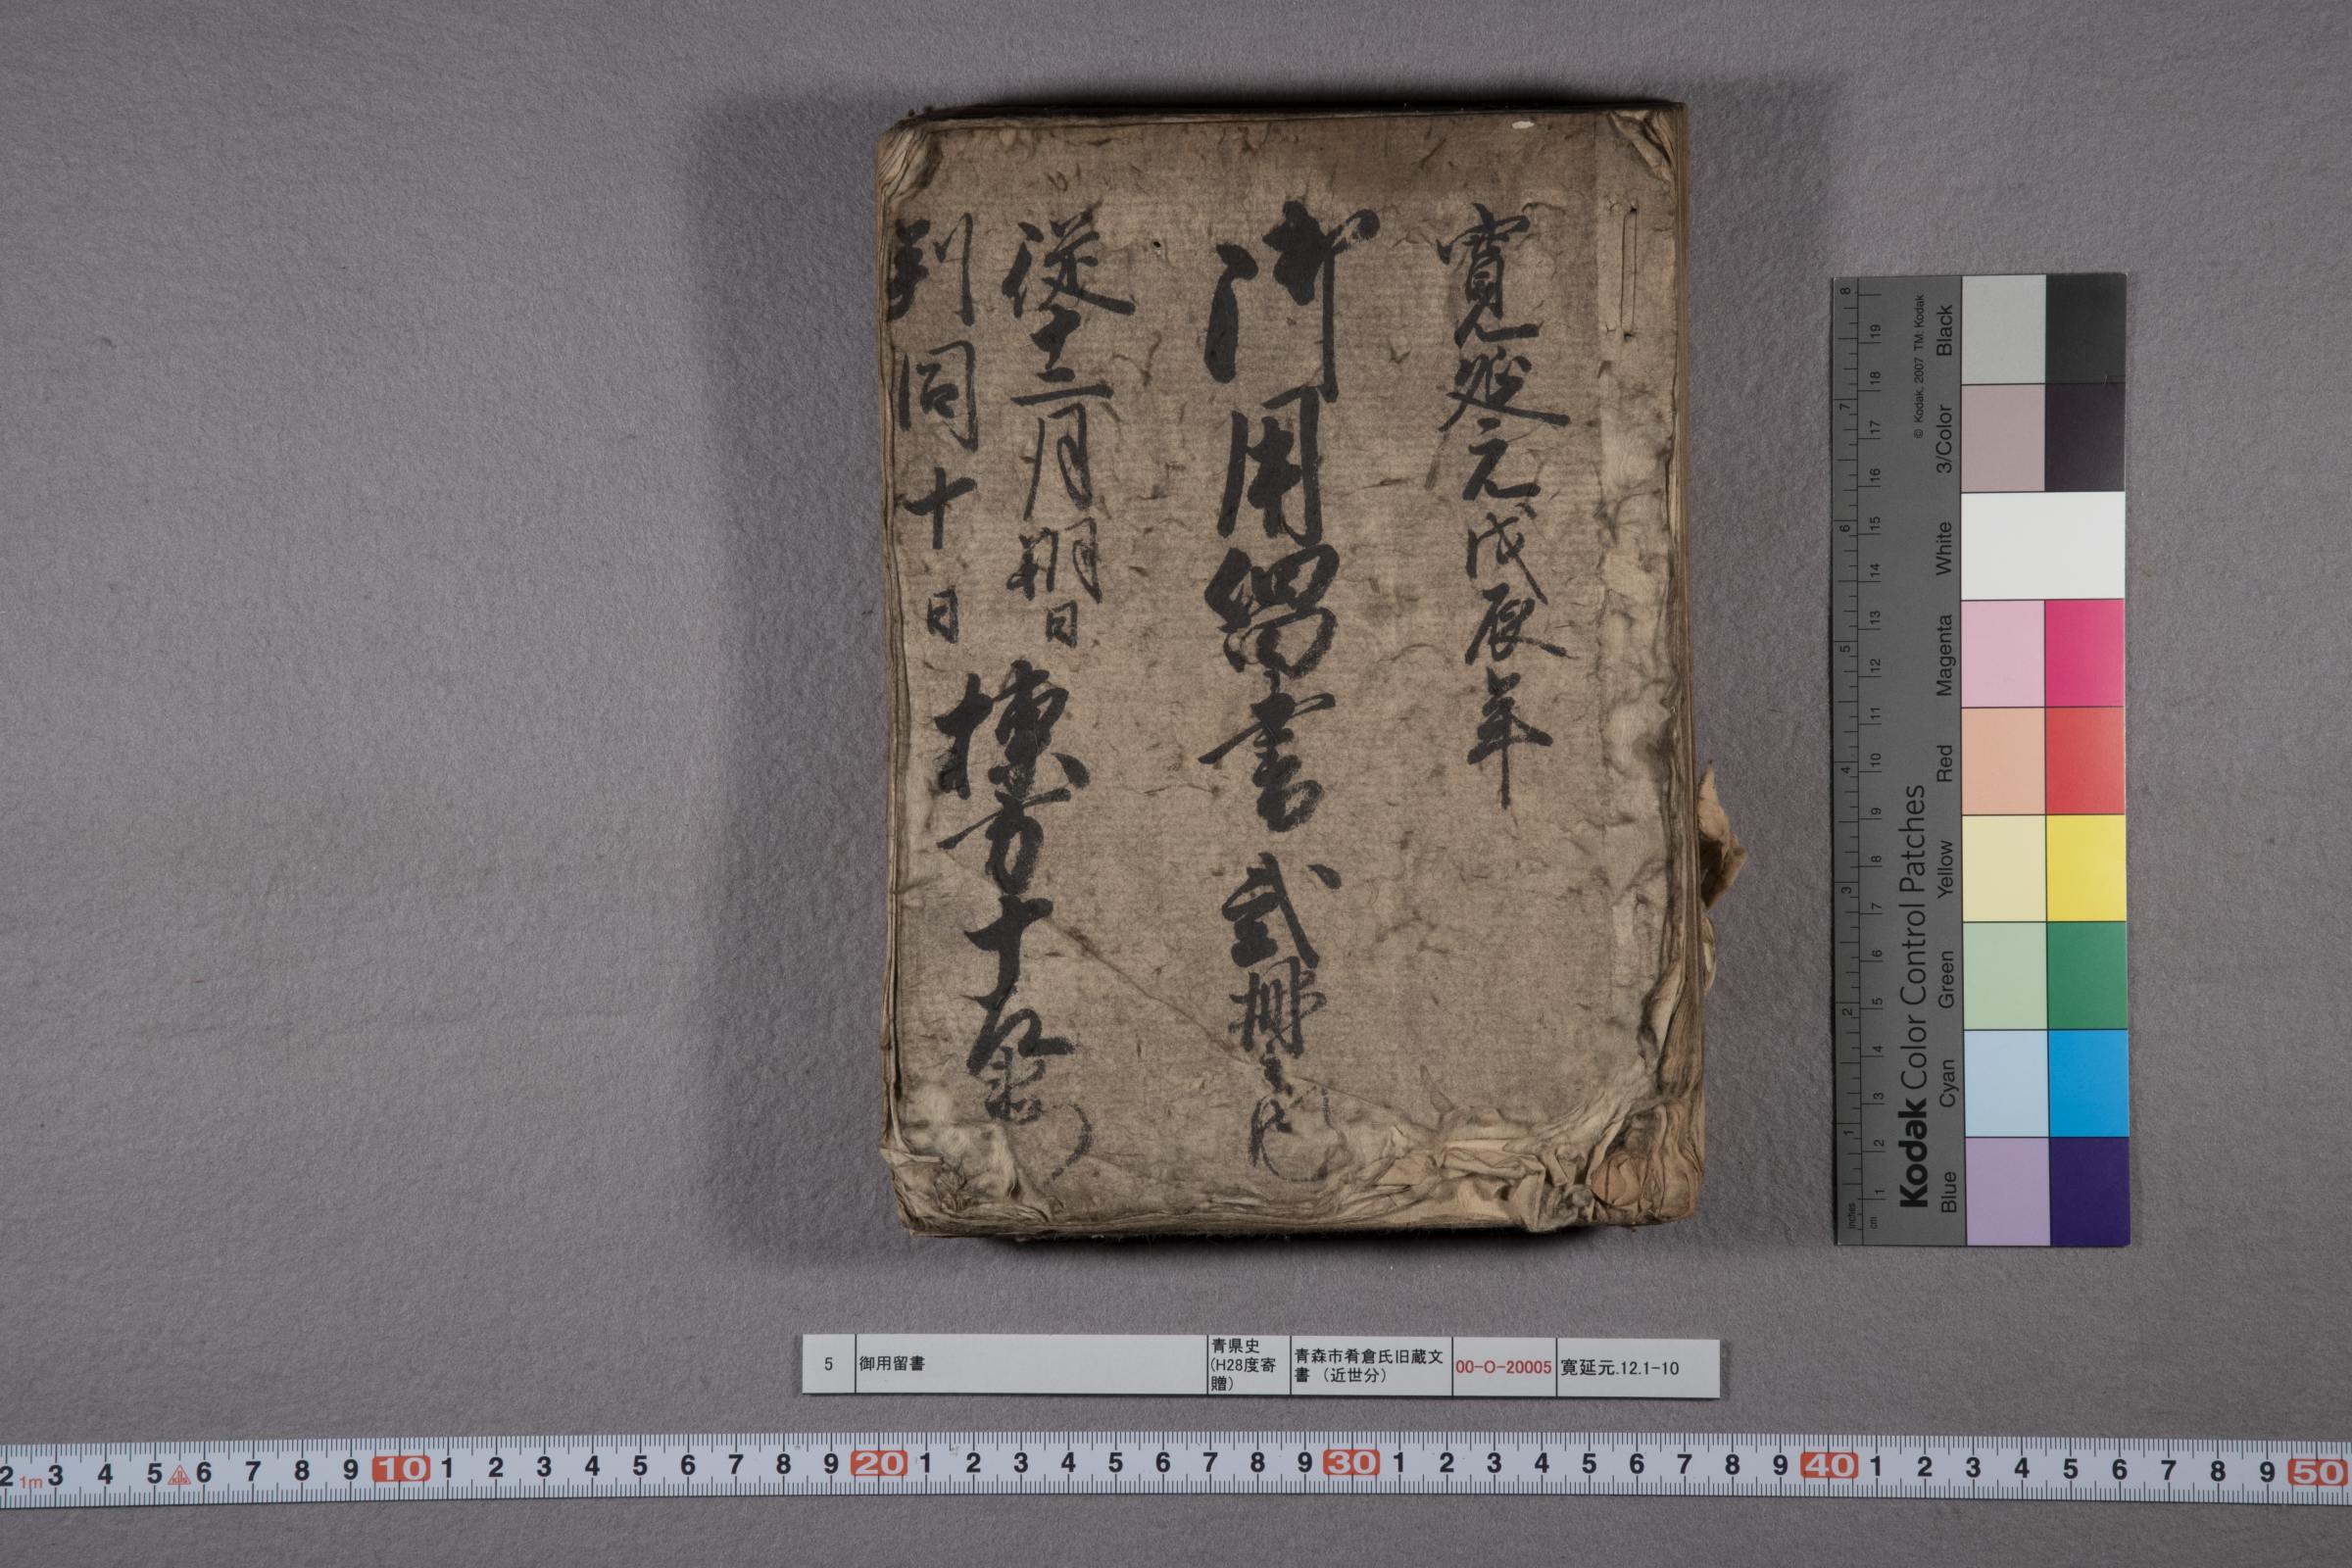 寛延元戊辰年
御用留書 弐棚之内
従十二月朔日
到同十日
棟方十左衛門
5
御用留書
青県史
(H28度寄
贈)
青森市肴倉氏旧蔵文
書 （近世分）
00-O-20005
寛延元.12.1-10
Kodak Color Control Patches
© Kodak, 2007 TM: Kodak
Blue Cyan Green Yellow Red Magenta White 3/Color Black
inches 1 2 3 4 5 6 7 8
cm 1 2 3 4 5 6 7 8 9 10 11 12 13 14 15 16 17 18 19
2 1m 3 4 5 6 7 8 9 10 1 2 3 4 5 6 7 8 9 20 1 2 3 4 5 6 7 8 9 30 1 2 3 4 5 6 7 8 9 40 1 2 3 4 5 6 7 8 9 50